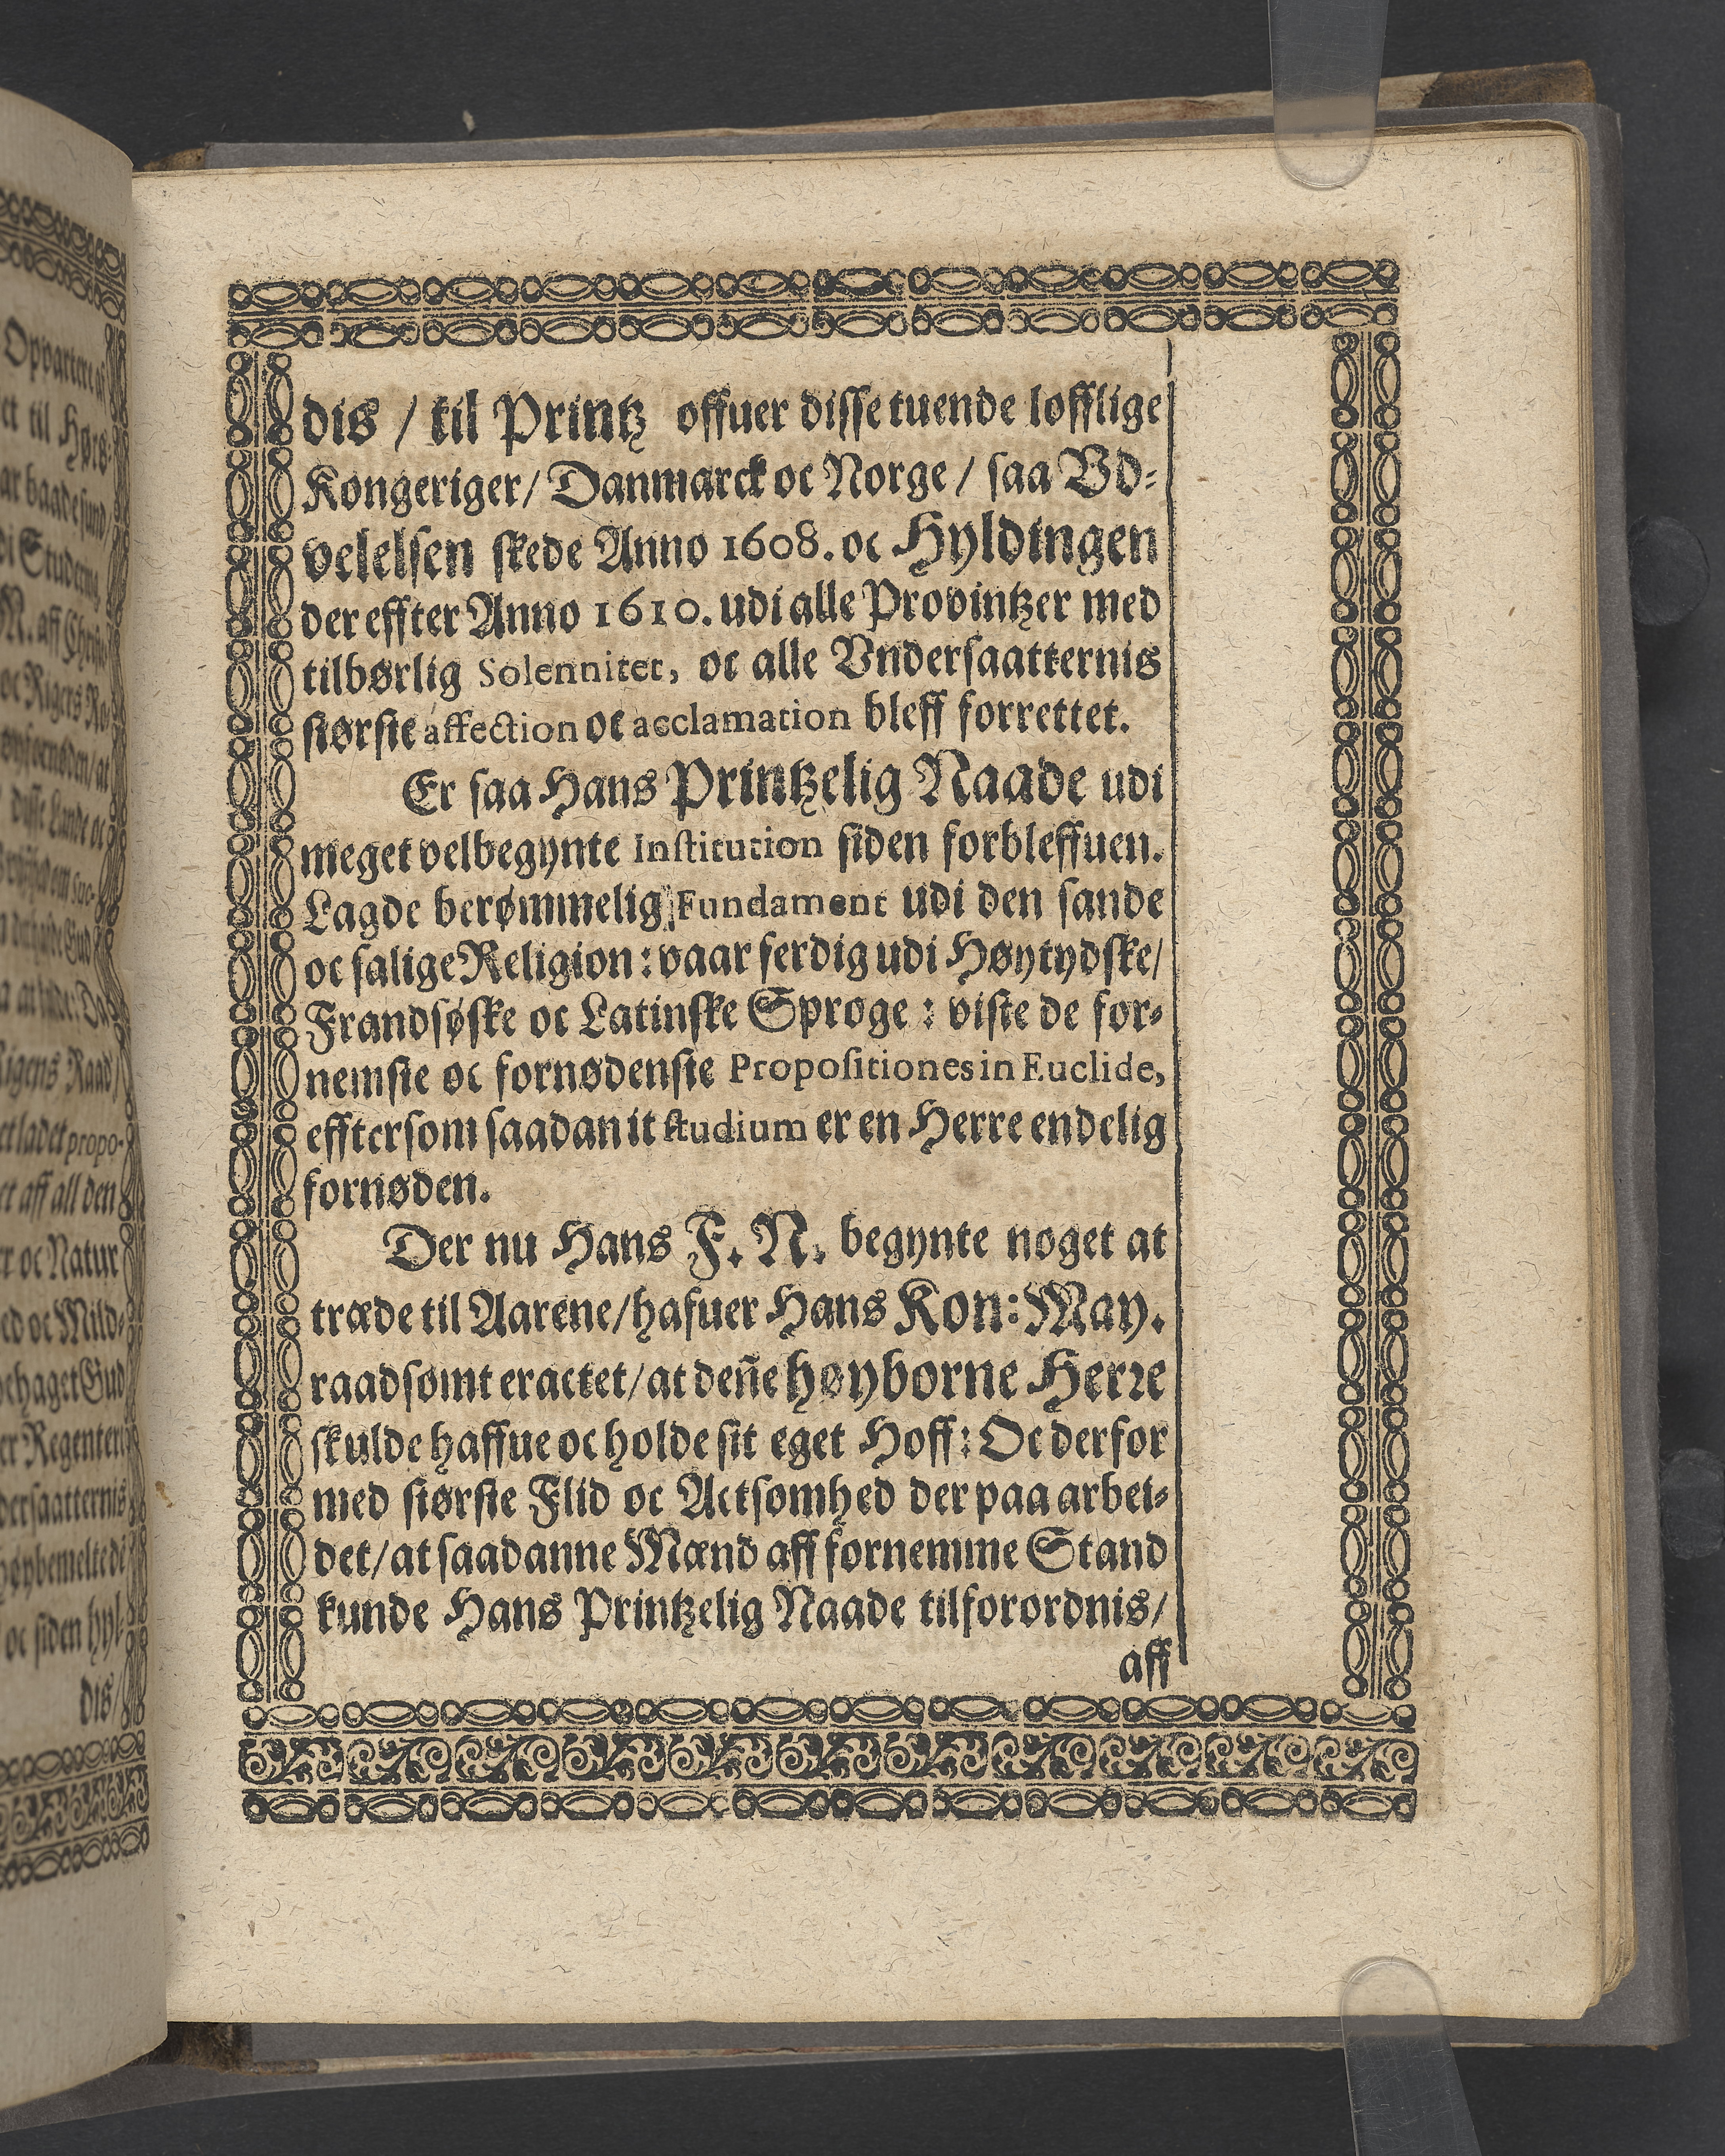 dis / til Printz offuer disse tuende lofflige
Kongeriger / Danmarck oc Norge / saa Vd-
velelsen skede Anno 1608. oc Hyldingen
der effter Anno 1610. udi alle Provintzer med
tilbørlig Solennitet, oc alle Vndersaatternis
største affection oc acclamation bleff forrettet.
Er saa Hans Printzelig Naade udi
meget velbegynte Institution siden forbleffuen.
Lagde berømmelig Fundament udi den sande
oc salige Religion: vaar ferdig udi Høytydske/
Frandsøske oc Latinske Sproge: viste de for-
nemste oc fornødenste Propositiones in Euclide,
efftersom saadan it studium er en Herre endelig
fornøden.
Der nu Hans F. N. begynte noget at
træde til Aarene/hafuer Hans Kon: May.
raadsømt eractet/at deñe høyborne Herre
skulde haffue oc holde sit eget Hoff: Oc derfor
med største Flid oc Actsomhed der paa arbei-
det/at saadanne Mænd aff fornemme Stand
kunde Hans Printzelig Naade tilforordnis/
aff
et til
baade
di
N. aff
oc Rigers
disse Lande oc
Rigens Raad/
aff all den
oc Natur
oc Mild-
behaget Gud
Regenter
oc siden hyl-
dis/